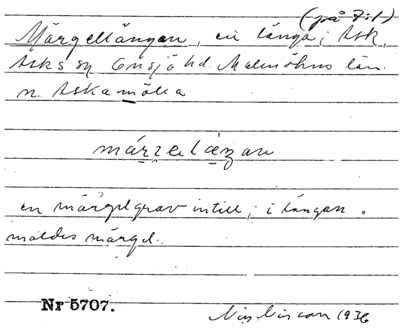 (på 7:1)
Märgellängan, en länga i Ask,
Asks sn Onsjö hd. Malmöhus län.
n. Askamölla
en märgelgrav intill; i längan
maldes märgel.
Nr 5707.
Nils Nilsson 1936